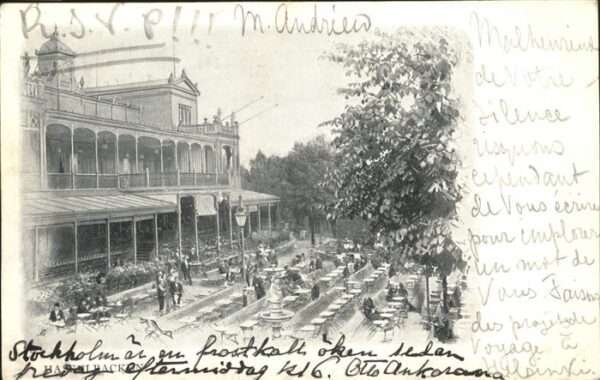 R.S.V.P!!! M. Andriew
Malheureux
de Votre
silence
risquons
cependant
de Vous écrire
pour implorer
un mot de
Vous Faisons
des projets de
voyage à
HASSELBACKEN
Stockholm är en frostkall öken sedan
fredag eftermiddag kl 6. Otto Ankarcrona